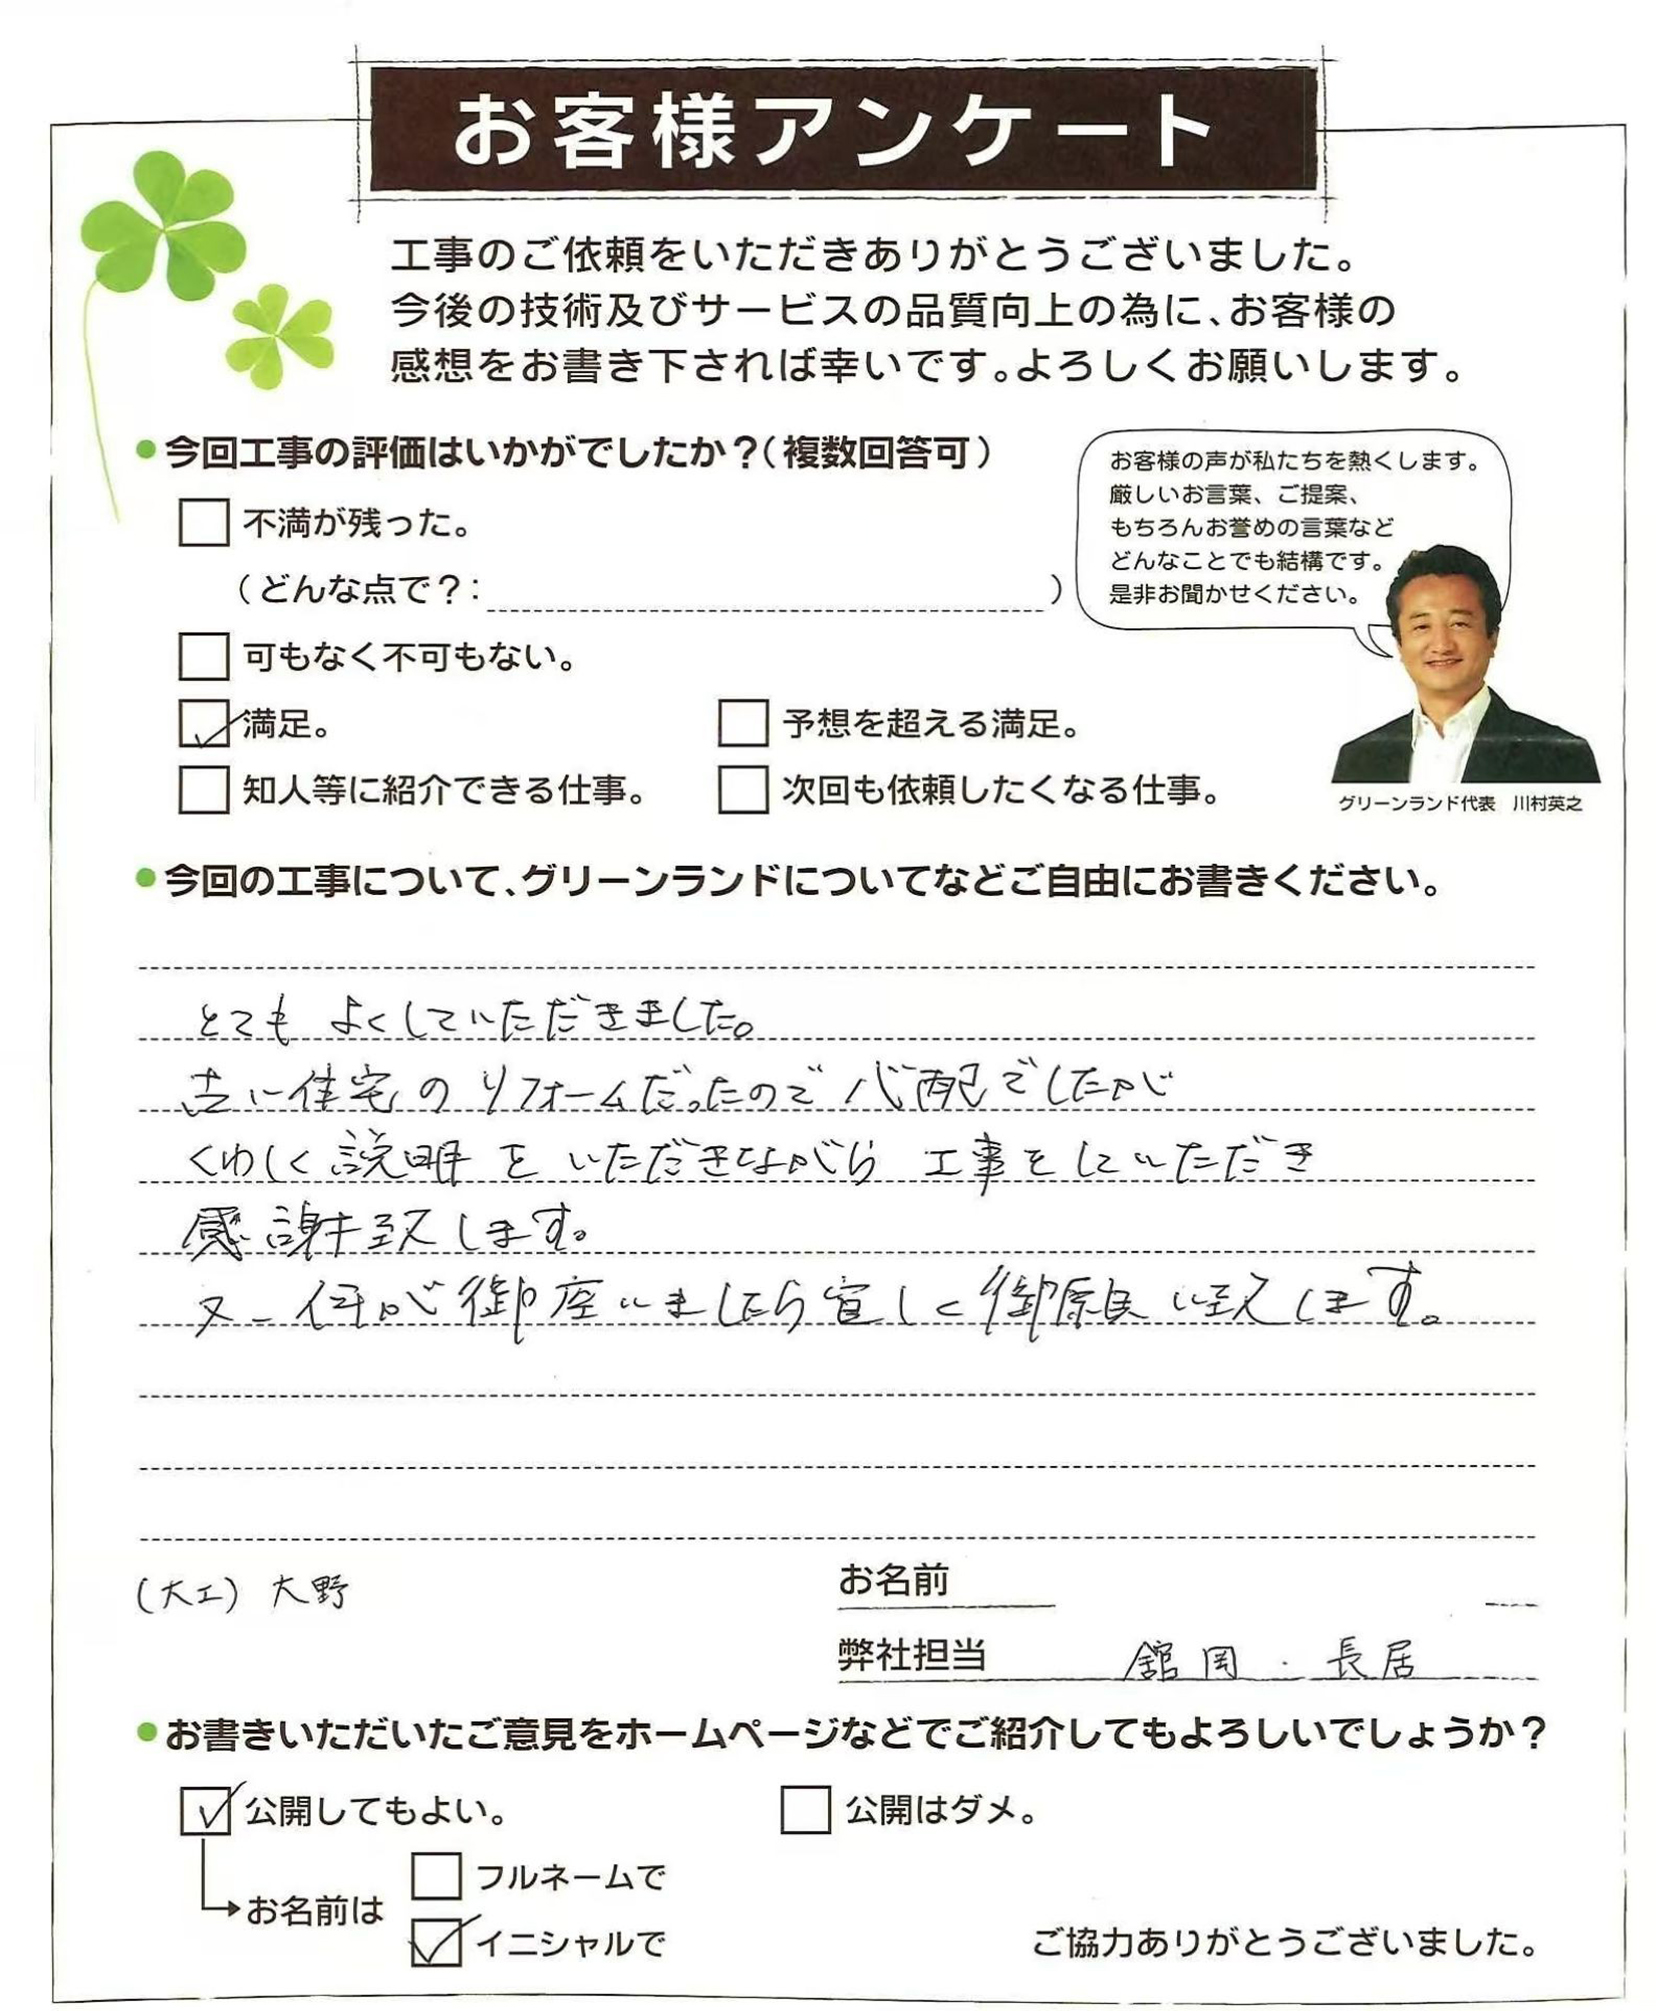 お客様アンケート
工事のご依頼をいただきありがとうございました。
今後の技術及びサービスの品質向上の為に、お客様の
感想をお書き下されば幸いです。よろしくお願いします。
●今回工事の評価はいかがでしたか?(複数回答可)
不満が残った。
(どんな点で?: )
可もなく不可もない。
満足。 予想を超える満足。
知人等に紹介できる仕事。 次回も依頼したくなる仕事。
お客様の声が私たちを熱くします。
厳しいお言葉、ご提案、
もちろんお誉めの言葉など
どんなことでも結構です。
是非お聞かせください。
グリーンランド代表 川村英之
●今回の工事について、グリーンランドについてなどご自由にお書きください。
とても よくしていただきました。
古い住宅のリフォームだったので心配でしたが
くわしく説明をいただきながら工事をしていただき
感謝致します。
又、何か御座いましたら宜しく御願い致します。
(大工) 大野
お名前
弊社担当 舘岡・長居
●お書きいただいたご意見をホームページなどでご紹介してもよろしいでしょうか?
公開してもよい。 公開はダメ。
お名前は
フルネームで
イニシャルで
ご協力ありがとうございました。